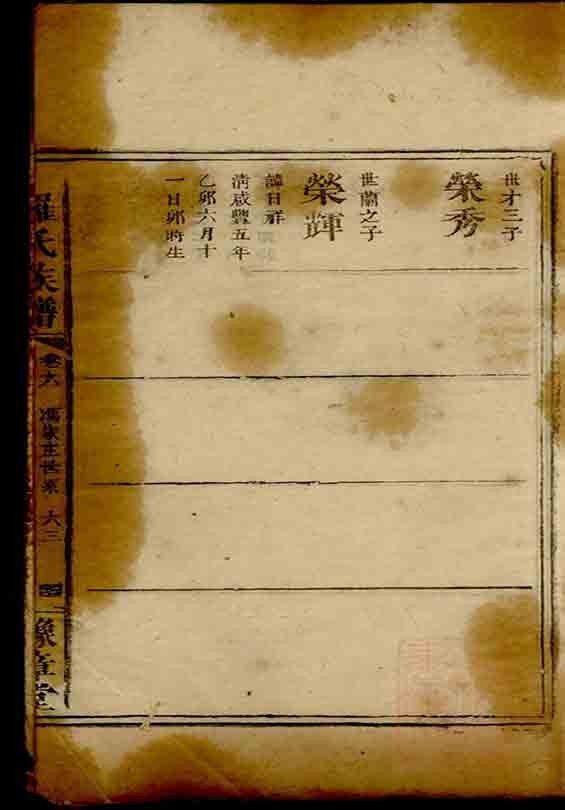 世才三子
榮秀
世蘭之子
榮輝
諱日祥
清咸豐五年
乙卯六月十
一日卯時生
羅氏族譜
卷六
世系
六三
豫章堂